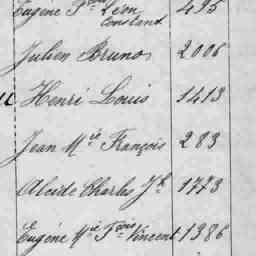 Eugène Fçois Léon 495
Constant
Julien Bruno 2006
Henri Louis 1413
Jean Mie François 283
Alcide Charles Jh 1773
Eugène Mie Fçois Vincent 1386